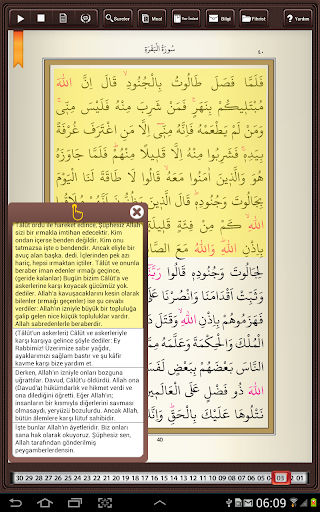 Sureler
Meal
Bilgi
Fihrist
Yardım
سُورَةُ الْبَقَرَةِ
٤٠
فَلَمَّا فَصَلَ طَالُوتُ بِالْجُنُودِ قَالَ اِنَّ اللّٰهَ
مُبْتَلٖيكُمْ بِنَهَرٍ فَمَنْ شَرِبَ مِنْهُ فَلَيْسَ مِنّٖى
وَمَنْ لَمْ يَطْعَمْهُ فَاِنَّهُ مِنّٖى اِلَّا مَنِ اغْتَرَفَ غُرْفَةً
بِيَدِهٖ فَشَرِبُوا مِنْهُ اِلَّا قَلٖيلًا مِنْهُمْ فَلَمَّا جَاوَزَهُ
هُوَ وَالَّذٖينَ اٰمَنُوا مَعَهُ قَالُوا لَا طَاقَةَ لَنَا الْيَوْمَ
بِجَالُوتَ وَجُنُودِهٖ قَالَ الَّذٖينَ يَظُنُّونَ اَنَّهُمْ مُلَاقُوا
اللّٰهِ كَمْ مِنْ فِئَةٍ قَلٖيلَةٍ
بِاِذْنِ اللّٰهِ وَاللّٰهُ مَعَ
لِجَالُوتَ وَجُنُودِهٖ قَالُوا رَبَّنَا
وَثَبِّتْ اَقْدَامَنَا وَانْصُرْنَا عَلَى
فَهَزَمُوهُمْ بِاِذْنِ اللّٰهِ وَقَتَلَ
الْمُلْكَ وَالْحِكْمَةَ وَعَلَّمَهُ
النَّاسَ بَعْضَهُمْ بِبَعْضٍ
اللّٰهَ ذُو فَضْلٍ عَلَى الْعَالَمٖينَ
نَتْلُوهَا عَلَيْكَ بِالْحَقِّ وَاِنَّكَ
40
Tâlût ordu ile hareket edince, Şüphesiz Allah
sizi bir ırmakla imtihan edecektir. Kim
ondan içerse benden değildir. Kim onu
tatmazsa işte o bendendir. Ancak eliyle bir
avuç alan başka. dedi. İçlerinden pek azı
hariç, hepsi ırmaktan içtiler. Tâlût ve onunla
beraber iman edenler ırmağı geçince,
(geride kalanlar) Bugün bizim Câlût'a ve
askerlerine karşı koyacak gücümüz yok
dediler. Allah'a kavuşacaklarını kesin olarak
bilenler (ırmağı geçenler) ise şu cevabı
verdiler: Allah'ın izniyle büyük bir topluluğa
galip gelen nice küçük topluluklar vardır.
Allah sabredenlerle beraberdir.
(Tâlût'un askerleri) Câlût ve askerleriyle
karşı karşıya gelince şöyle dediler: Ey
Rabbimiz! Üzerimize sabır yağdır,
ayaklarımızı sağlam bastır ve şu kâfir
kavme karşı bize yardım et.
Derken, Allah'ın izniyle onları bozguna
uğrattılar. Davud, Câlût'u öldürdü. Allah ona
(Davud'a) hükümdarlık ve hikmet verdi ve
ona dilediğini öğretti. Eğer Allah'ın;
insanların bir kısmıyla diğerlerini savması
olmasaydı, yeryüzü bozulurdu. Ancak Allah,
bütün âlemlere karşı lütuf sahibidir.
İşte bunlar Allah'ın âyetleridir. Biz onları
sana hak olarak okuyoruz. Şüphesiz sen,
Allah tarafından gönderilmiş
peygamberlerdensin.
30 29 28 27 26 25 24 23 22 21 20 19 18 17 16 15 14 13 12 11 10 09 08 07 06 05 04 03 2 01
06:09